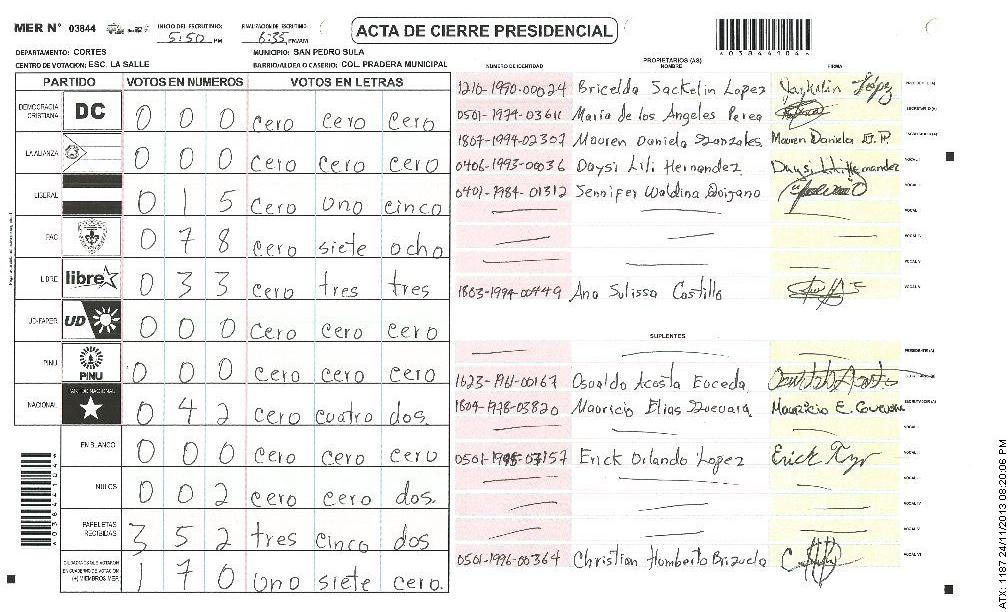 MER N° 03844 INICIO DEL ESCRUTINIO: 5:50 PM FINALIZACION DE ESCRUTINIO 6:35 PM/AM ACTA DE CIERRE PRESIDENCIAL
DEPARTAMENTO: CORTES MUNICIPIO: SAN PEDRO SULA
CENTRO DE VOTACION: ESC. LA SALLE BARRIO/ALDEA O CASERIO: COL. PRADERA MUNICIPAL
PARTIDO VOTOS EN NUMEROS VOTOS EN LETRAS
DEMOCRACIA CRISTIANA DC 0 0 0 cero cero cero
LA ALIANZA 0 0 0 cero cero cero
LIBERAL 0 1 5 cero uno cinco
PAC 0 7 8 cero siete ocho
LIBRE libre 0 3 3 cero tres tres
UD-FAPER UD 0 0 0 cero cero cero
PINU PINU 0 0 0 cero cero cero
NACIONAL 0 4 2 cero cuatro dos.
EN BLANCO 0 0 0 cero cero cero
NULOS 0 0 2 cero cero dos.
PAPELETAS RECIBIDAS 3 5 2 tres cinco dos
CIUDADANOS QUE VOTARON EN CUADERNO DE VOTACION (+) MIEMBROS MER 1 7 0 uno siete cero.
PROPIETARIOS (AS)
NUMERO DE IDENTIDAD NOMBRE FIRMA
1210-1990-00024 Bricelda Sackelin Lopez López
0501-1974-03611 Maria de los Angeles Perea
1807-1994-02307 Mauren Daniela Mauren Daniela
0406-1993-00036 Daysi Lili Hernandez Daysi Lili Hernandez
0401-1984-01312 Jennifer Waldina
1803-1994-00449 Ana Sulissa Castillo
SUPLENTES
1623-1961-00167 Osualdo Acosta Euceda
1804-1978-03820 Mauricio Elias Mauricio E.
0501-1995-03157 Erick Orlando Lopez Erick
0501-1996-00364 Christian Humberto Brizuela
ATX: 1187 24/11/2013 08:20:06 PM